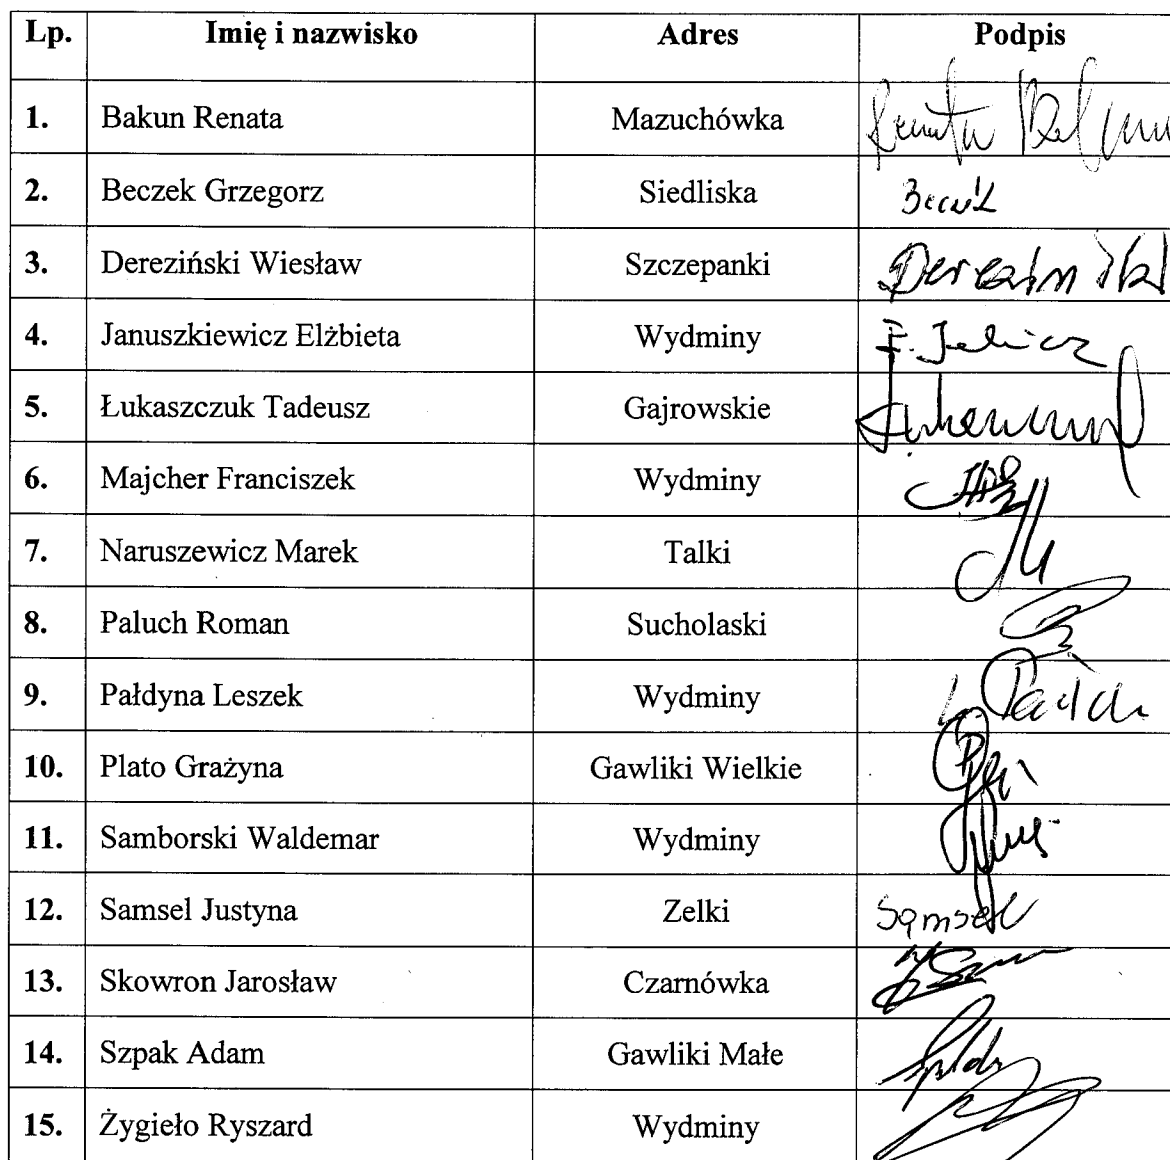 Lp. Imię i nazwisko Adres Podpis
1. Bakun Renata Mazuchówka Renata
2. Beczek Grzegorz Siedliska
3. Dereziński Wiesław Szczepanki Dereziński
4. Januszkiewicz Elżbieta Wydminy
5. Łukaszczuk Tadeusz Gajrowskie
6. Majcher Franciszek Wydminy
7. Naruszewicz Marek Talki
8. Paluch Roman Sucholaski
9. Pałdyna Leszek Wydminy
10. Plato Grażyna Gawliki Wielkie
11. Samborski Waldemar Wydminy
12. Samsel Justyna Zelki Samsel
13. Skowron Jarosław Czarnówka
14. Szpak Adam Gawliki Małe
15. Żygieło Ryszard Wydminy